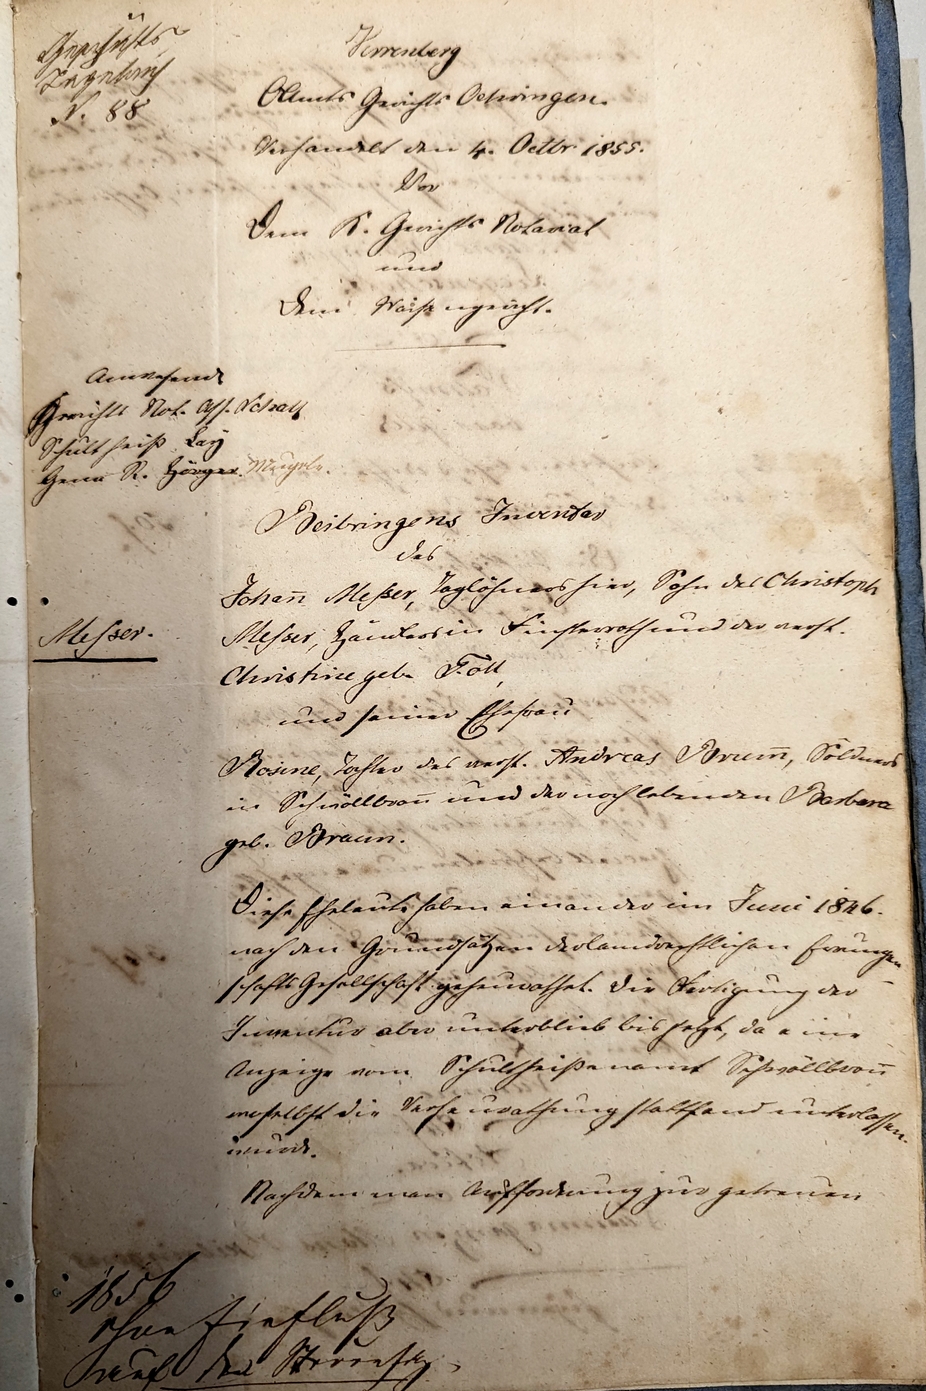 Geschäfts
Tagebuch
N. 88
Verrenberg
OAmts Gerichts Oehringen.
Verhandelt den 4. Octbr 1855.
Vor
Dem K. Gerichts Notariat
und
Dem Waisengericht.
Anwesend
Gerichts Not. Ass.
Schultheiß Lay
Gem R.
Beibringens Inventar
des
Messer.
Johann Messer, Taglöhners hier, Sohn des Christoph
Messer, Händlers in Finsterroth und der verst.
Christine geb. Föll,
und seiner Ehefrau
Rosine, Tochter des verst. Andreas Brumm, Söldners
in Schwöllbronn und der noch lebenden Barbara
geb. Braun.
Diese Eheleute haben einander im Juni 1846.
nach den Grundsätzen der landrechtlichen Errungen
schafts Gesellschaft geheurathet. Die Fertigung der
Inventur aber unterblieb bis jetzt, da eine
Anzeige vom Schultheißenamt Schwöllbronn
woselbst die Verheurathung stattfand unterlassen
wurde.
Nachdem man Aufforderung zur getreuen
1856
ohne Einfluß
auf den